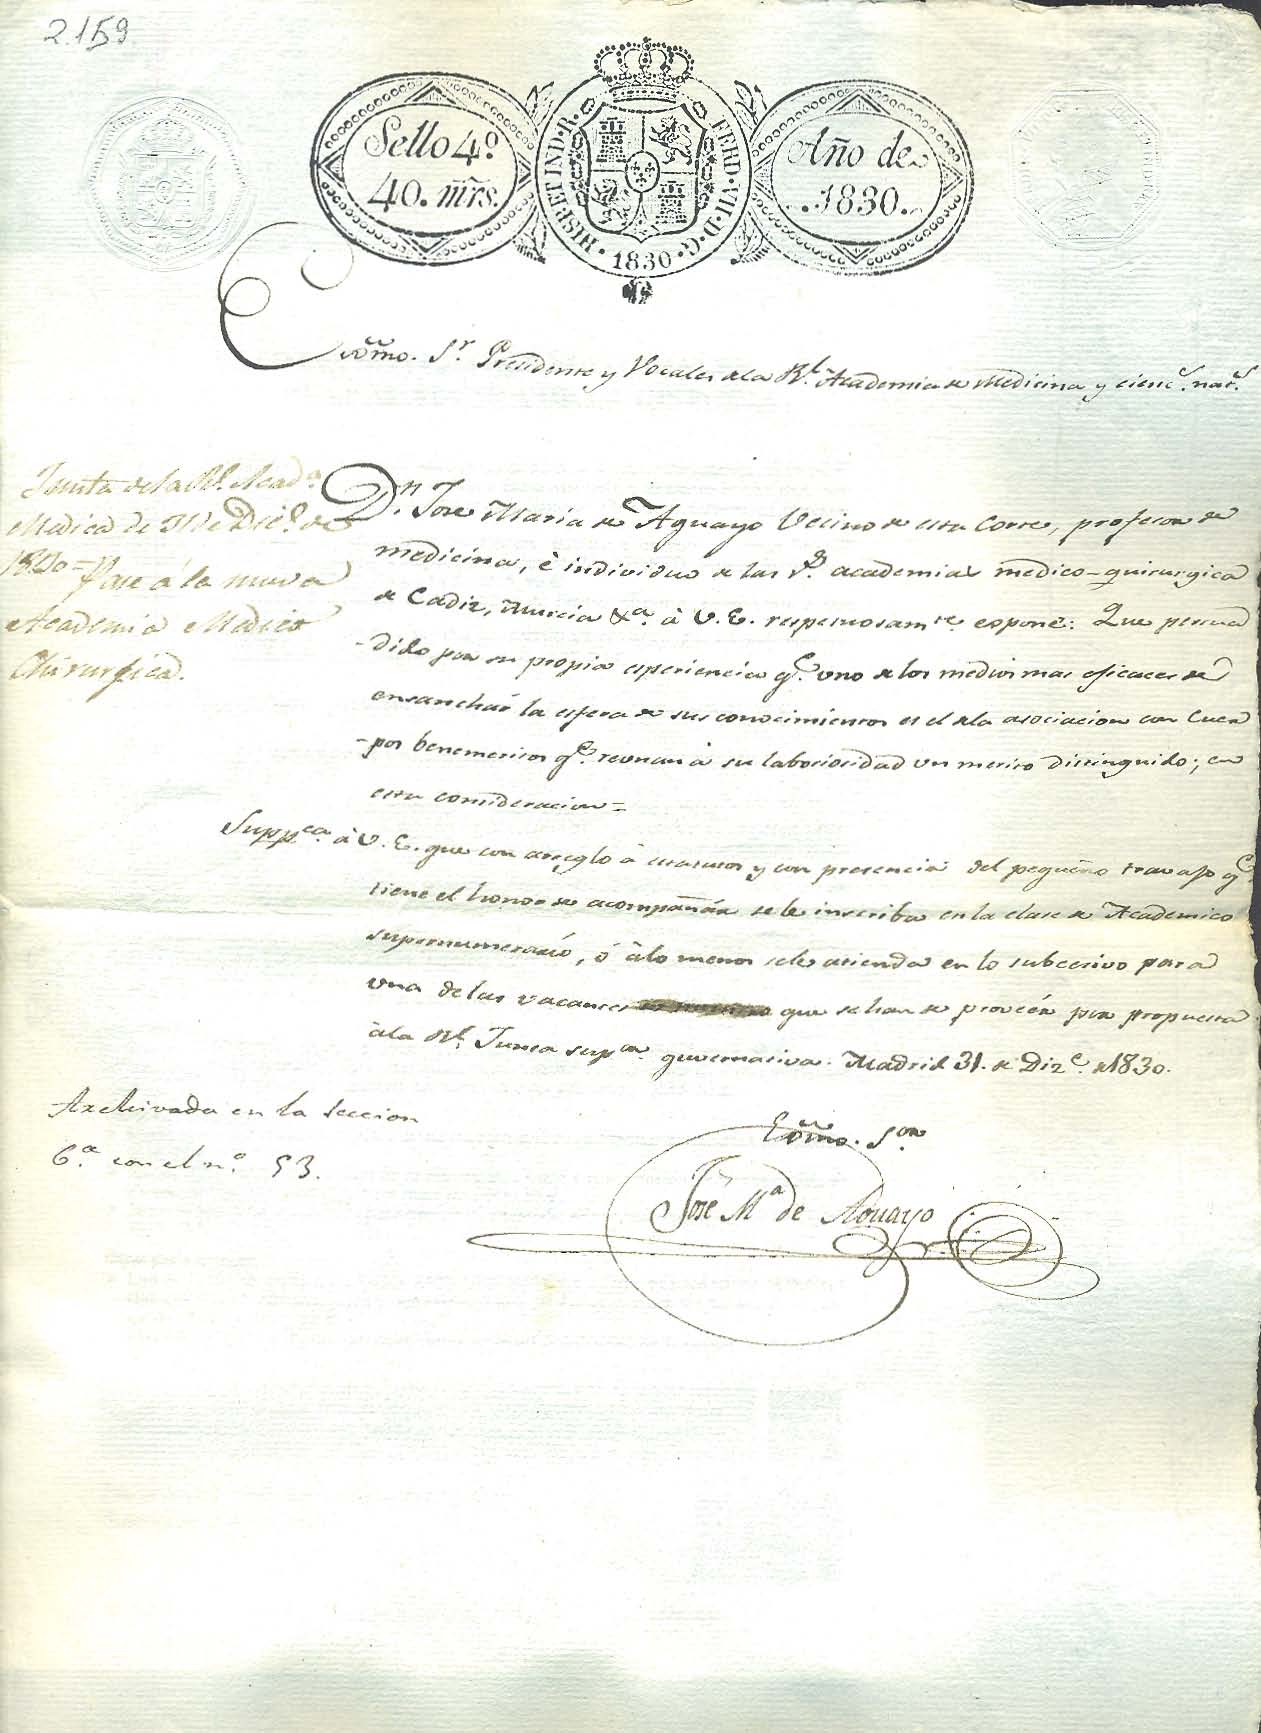 2.159
Sello 4º
40. mrs.
HISP. ET IND. R. FERD. VII. D. G. 1830
Año de
1830.
Exmo. Sr. Presidente y Vocales de la Rl. Academia de Medicina y cienc.s nat.s
Junta de la Rl. Acad.a
Medica de 31 de Dic.e de
1830 = Pase á la nueva
Academia Medico
Chirurgica.
Dn. Jose Maria de Aguayo Vecino de esta Corte, profesor de
medicina, è individuo de las Rs. academias medico-quirurgica
de Cadiz, Murcia &a. à V. E. respetuosamte. espone: Que persua
-dido por su propia esperiencia q.e uno de los medios mas eficaces de
ensanchar la esfera de sus conocimientos es el de la asociacion con Cuer
-pos benemeritos q.e reunan à su laboriosidad un merito distinguido; en
esta consideracion =
Supp.ca à V. E. que con arreglo à estatutos y con presencia del pequeño travajo q.e
tiene el honor de acompañar se le inscriba en la clase de Academico
supernumerario, ó à lo menos se le atienda en lo subcesivo para
una de las vacantes que se han de proveer por propuesta
à la Rl. Junta sup.or guvernativa. Madrid 31. de Diz.e de 1830.
Archivada en la seccion
6.a con el n.o 53.
Exmo. Sor.
José M.a de Aguayo